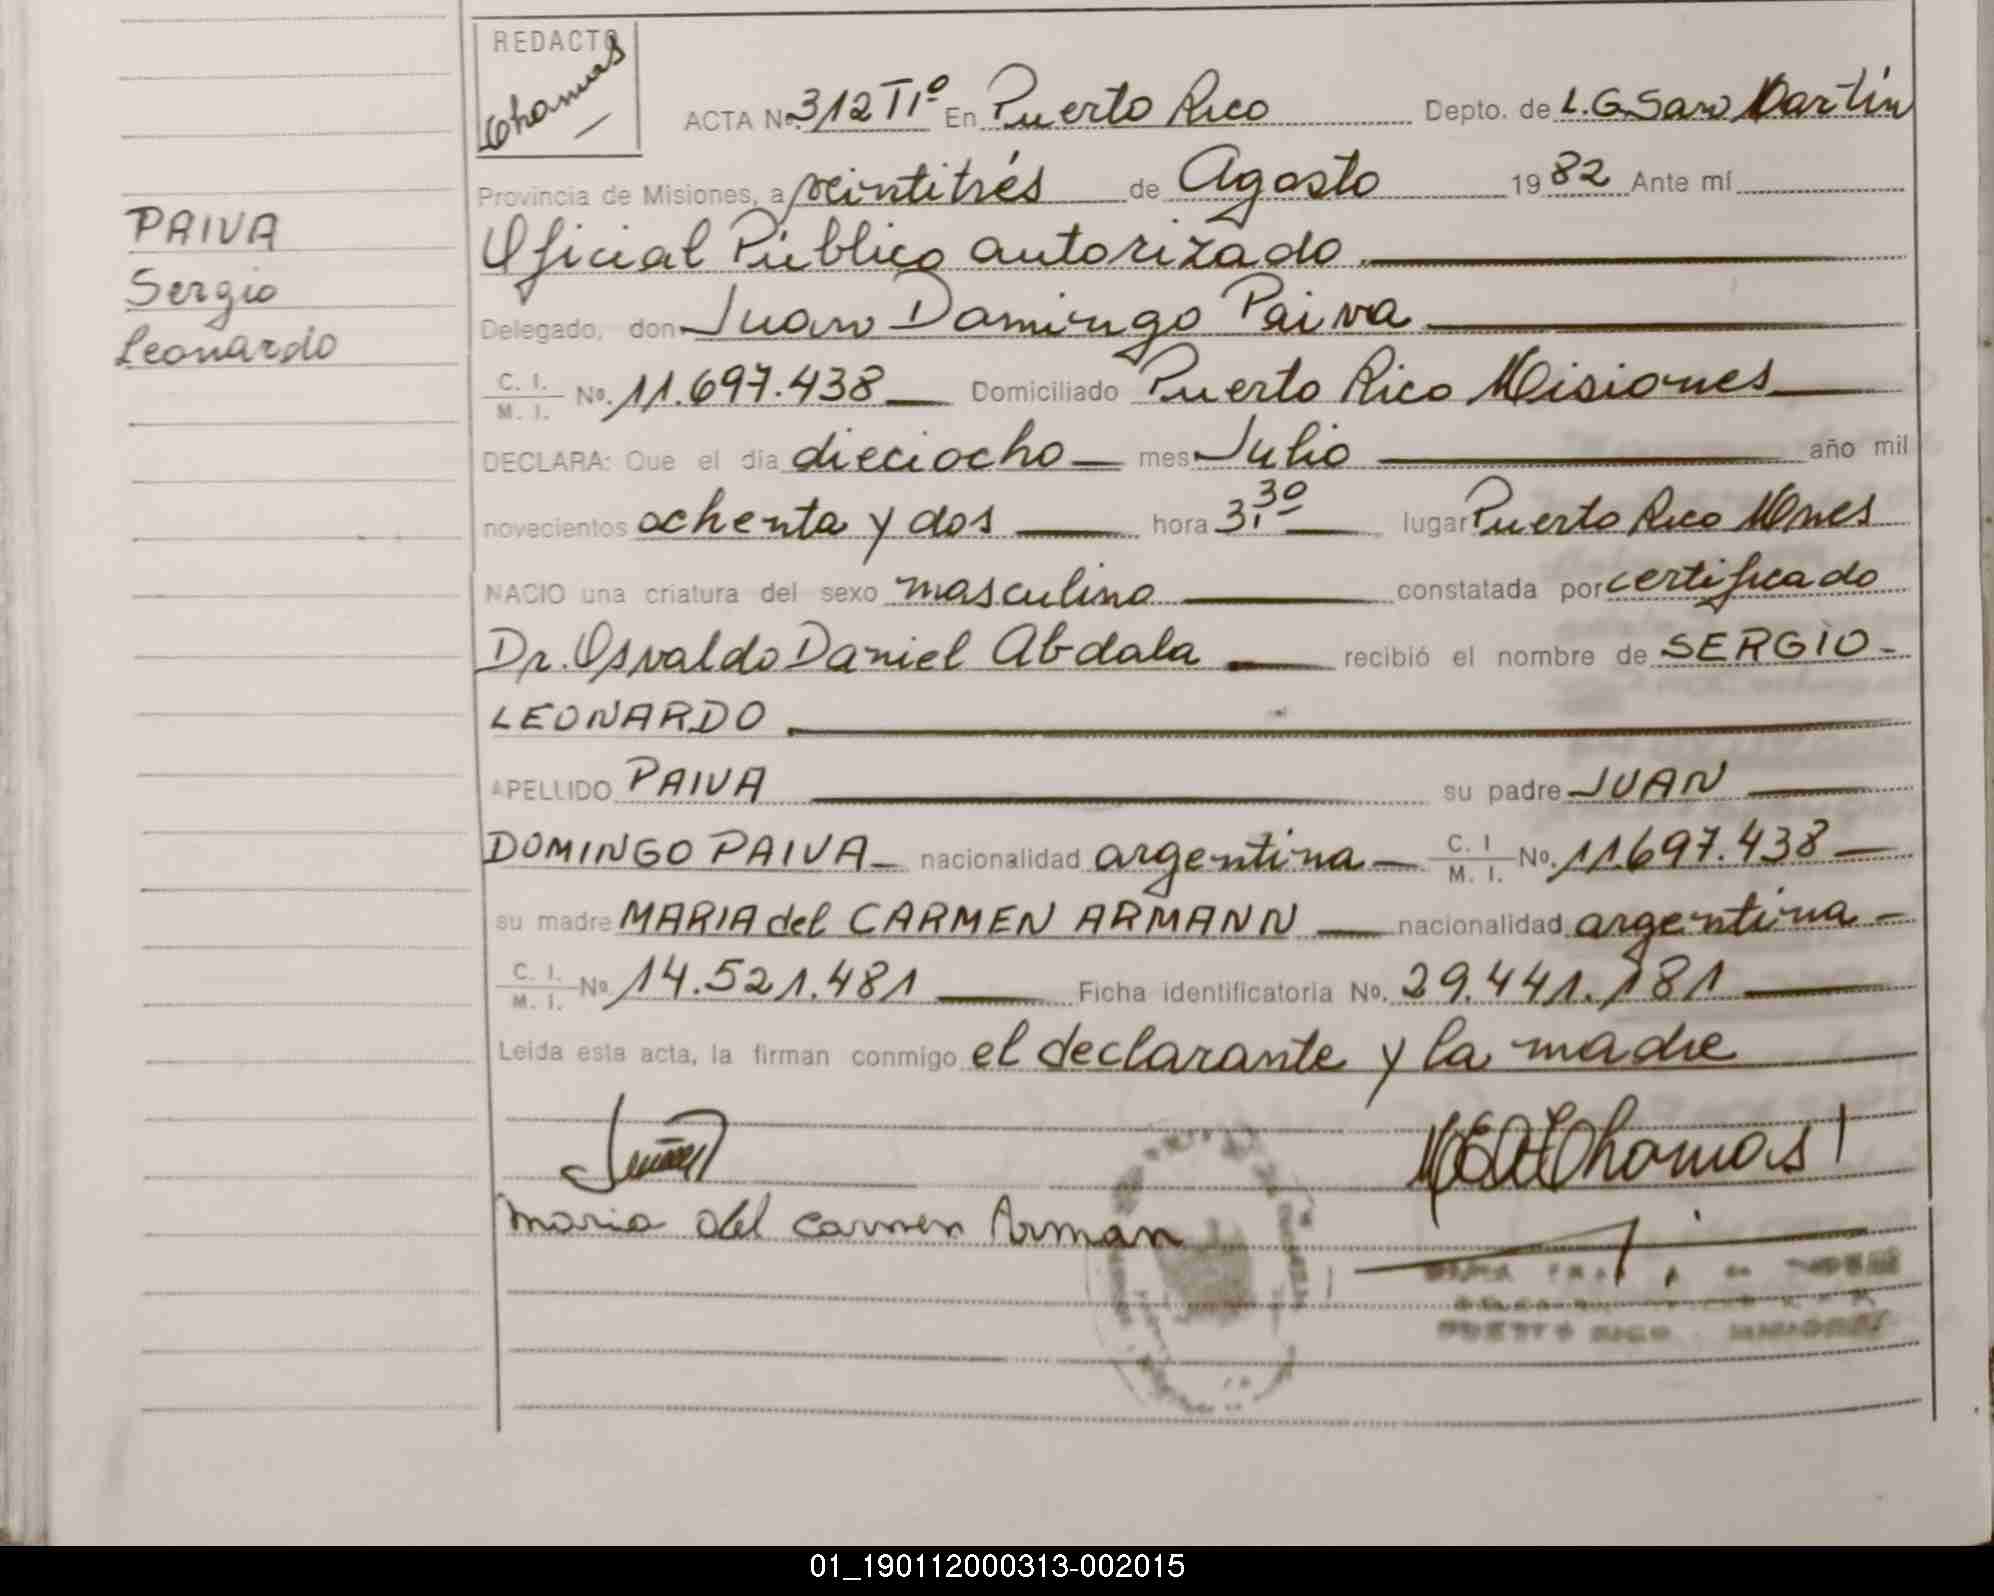 REDACTO
Thomas
ACTA No. 312 TIº En Puerto Rico Depto. de L. G. San Martín
Provincia de Misiones, a veintitrés de Agosto 1982 Ante mí
Oficial Público autorizado
PAIVA
Sergio
Leonardo
Delegado, don Juan Domingo Paiva
C. I. / M. I. No. 11.697.438 Domiciliado Puerto Rico Misiones
DECLARA: Que el dia dieciocho mes Julio año mil
novecientos ochenta y dos hora 3.30 lugar Puerto Rico Mnes
NACIO una criatura del sexo masculino constatada por certificado
Dr. Osvaldo Daniel Abdala recibió el nombre de SERGIO
LEONARDO
APELLIDO PAIVA su padre JUAN
DOMINGO PAIVA nacionalidad argentina C. I / M. I. No. 11.697.438
su madre MARIA del CARMEN ARMANN nacionalidad argentina
C. I. / M. I. No. 14.521.481 Ficha identificatoria No. 29.441.181
Leída esta acta, la firman conmigo el declarante y la madre
Thomas
maria del carmen Arman
PUERTO RICO MISIONES
01_190112000313-002015